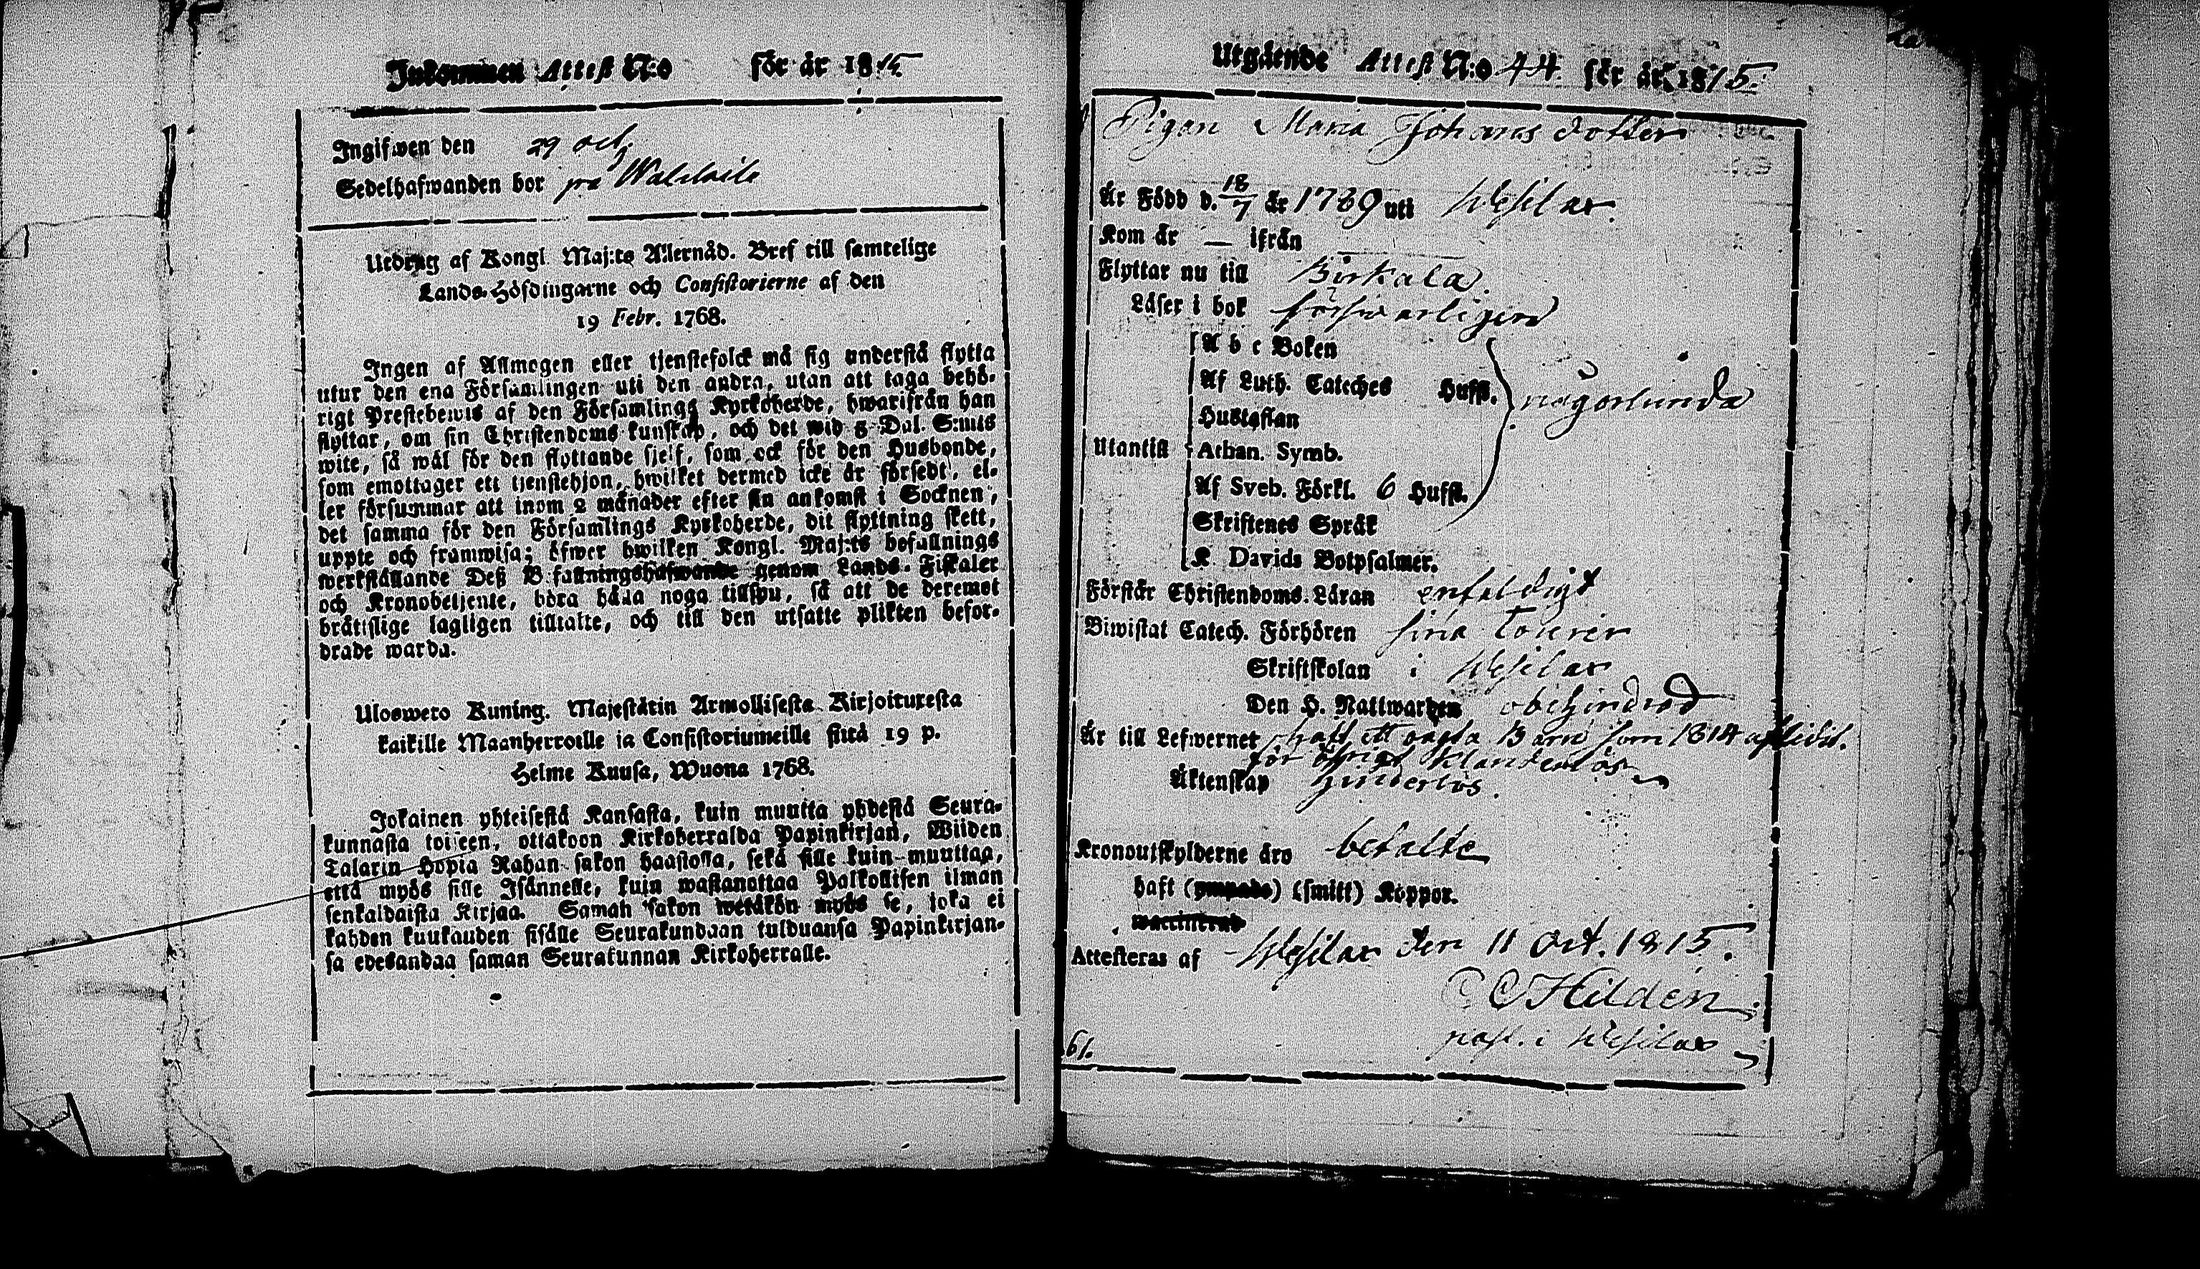 Inkommen Attest N:o för år 1815.
Ingifwen den 29 oct.
Sedelhafwanden bor på
Utdrag af Kongl. Maj:ts Allernåd. Bref till samtelige
Lands-Höfdingarne och Consistorierne af den
19 Febr. 1768.
Ingen af Allmogen eller tjenstefolck må sig understå flytta
utur den ena Församlingen uti den andra, utan att taga behö-
rigt Prestebewis af den Församlings Kyrkoherde, hwarifrån han
flyttar, om sin Christendoms kunskap, och det wid 5 Dal. S:mts
wite, så wäl för den flyttande sjelf, som ock för den Husbonde,
som emottager ett tjenstehjon, hwilket dermed icke är försedt, el-
ler försummar att inom 2 månader efter sin ankomst i Socknen,
det samma för den Församlings Kyrkoherde, dit flyttning skett,
uppte och framwisa; öfwer hwilken Kongl. Maj:ts befallnings
werkställande Deß Befallningshafwande genom Lands-Fiskaler
och Kronobetjente, böra hålla noga tillsyn, så att de deremot
brätislige lagligen tilltalte, och till den utsatte plikten befor-
drade warda.
Uloswero Kuning. Majestätin Armollisesta Kirjoituxesta
kaikille Maanherroille ja Consistoriumeille siitä 19 p.
Helme Kuusa, Wuona 1768.
Jokainen yhteisestä Kansasta, kuin muutta yhdestä Seura-
kunnasta toiseen, ottakoon Kirkoherralda Papinkirjan, Wiiden
Talarin Hopia Rahan sakon haastolla, sekä sille kuin muuttaa,
että myös sille Isännelle, kuin wastanottaa Palkollisen ilman
senkaldaista Kirjaa. Saman sakon wetäkön myös se, joka ei
kahden kuukauden sisälle Seurakundaan tulduansa Papinkirjan-
sa edesandaa saman Seurakunnan Kirkoherralle.
Utgående Attest N:o 44 för år 1815.
Pigan Maria Johans dotter
Är Född d. 18/7 år 1789 uti Wesilax.
Kom år — ifrån
Flyttar nu till Birkala.
Läser i bok försvarligen
A b c Boken
Af Luth. Cateches Hufst. någorlunda
Hustaflan
Utantill Athan. Symb.
Af Sveb. Förkl. 6 Hufst.
Skriftenes Språk
K. Davids Botpsalmer.
Förstår Christendoms-Läran enfaldigt
Biwistat Catech. Förhören sina tourer
Skriftskolan i Wesilax
Den H. Nattwarden obehindrad
Är till Lefwernet haft ett oägta Barn som 1814 aflidit.
för öfrigt klanderlös
Äktenskap hinderlös.
Kronoutskylderne äro betalte
haft (ympade) (smitt) Koppor.
vaccinerad
Attesteras af Wesilax den 11 Oct. 1815.
C Hildén
past. i Wesilax
61.